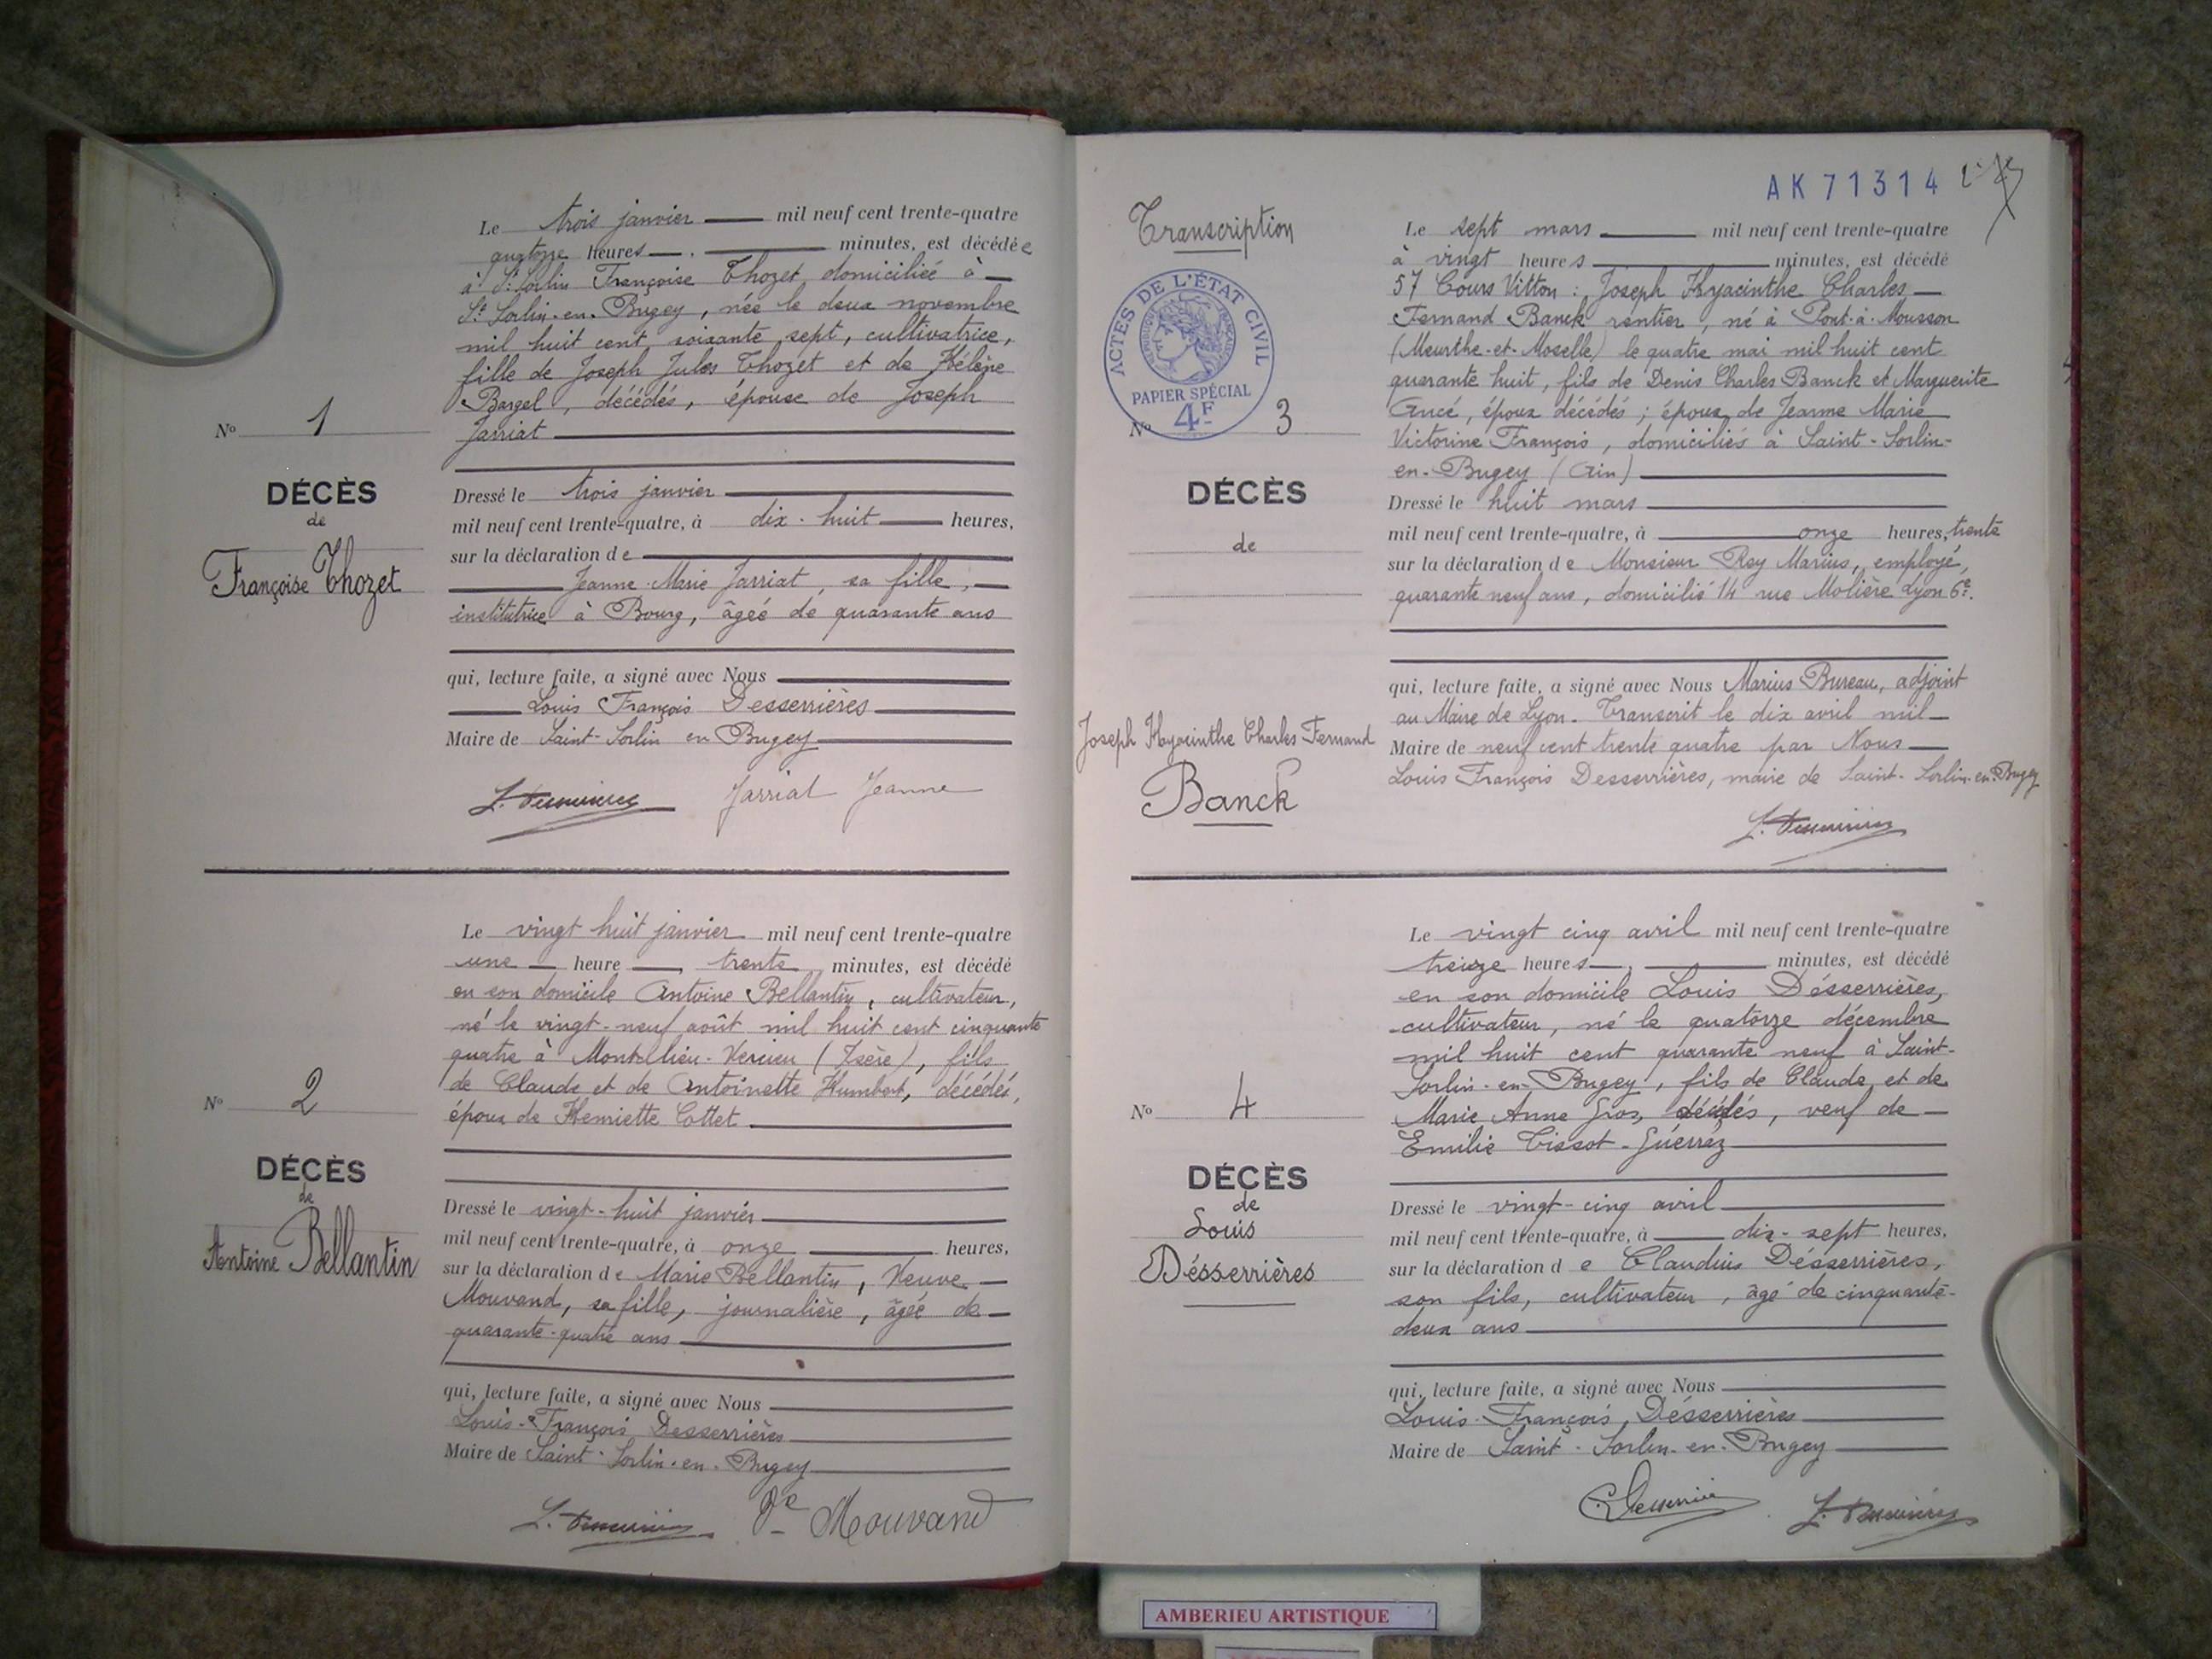 Le trois janvier mil neuf cent trente-quatre
quatorze heures minutes, est décédée
à St Sorlin Françoise Thozet domiciliée à
St Sorlin-en-Bugey, née le deux novembre
mil huit cent soixante sept, cultivatrice,
fille de Joseph Jules Thozet et de Hélène
Bargel, décédés, épouse de Joseph
Jarriat
No 1
DÉCÈS
de
Françoise Thozet
Dressé le trois janvier
mil neuf cent trente-quatre, à dix-huit heures,
sur la déclaration de
Jeanne-Marie Jarriat, sa fille,
institutrice à Bourg, âgée de quarante ans
qui, lecture faite, a signé avec Nous
Louis François Desserrières
Maire de Saint-Sorlin en Bugey
L. Desserrières Jarriat Jeanne
Le vingt huit janvier mil neuf cent trente-quatre
une heure, trente minutes, est décédé
en son domicile Antoine Bellantin, cultivateur,
né le vingt-neuf août mil huit cent cinquante
quatre à Montalieu-Vercieu (Isère), fils
de Claude et de Antoinette Humbert, décédés,
époux de Henriette Cottet
No 2
DÉCÈS
de
Antoine Bellantin
Dressé le vingt-huit janvier
mil neuf cent trente-quatre, à onze heures,
sur la déclaration de Marie Bellantin, Veuve
Mouvand, sa fille, journalière, âgée de
quarante-quatre ans
qui, lecture faite, a signé avec Nous
Louis-François Desserrières
Maire de Saint-Sorlin-en-Bugey
L. Desserrières Ve Mouvand
AK 71314
Transcription
ACTES DE L'ÉTAT CIVIL
RÉPUBLIQUE FRANÇAISE
PAPIER SPÉCIAL
4F
No 3
DÉCÈS
de
Joseph Hyacinthe Charles Fernand
Banck
Le sept mars mil neuf cent trente-quatre
à vingt heures minutes, est décédé
57 Cours Vitton : Joseph Hyacinthe Charles
Fernand Banck rentier, né à Pont-à-Mousson
(Meurthe-et-Moselle) le quatre mai mil huit cent
quarante huit, fils de Denis Charles Banck et Marguerite
Ancé, époux décédés ; époux de Jeanne Marie
Victorine François, domiciliés à Saint-Sorlin-
en-Bugey (Ain)
Dressé le huit mars
mil neuf cent trente-quatre, à onze heures, trente
sur la déclaration de Monsieur Rey Marius, employé,
quarante neuf ans, domicilié 14 rue Molière Lyon 6e.
qui, lecture faite, a signé avec Nous Marius Bureau, adjoint
au Maire de Lyon. Transcrit le dix avril mil
Maire de neuf cent trente quatre par Nous
Louis François Desserrières, maire de Saint-Sorlin-en-Bugey
L. Desserrières
Le vingt cinq avril mil neuf cent trente-quatre
treize heures minutes, est décédé
en son domicile Louis Désserrières,
cultivateur, né le quatorze décembre
mil huit cent quarante neuf à Saint-
Sorlin-en-Bugey, fils de Claude et de
Marie Anne Gros, décédés, veuf de
Emilie Tissot-Guerraz
No 4
DÉCÈS
de
Louis
Désserrières
Dressé le vingt-cinq avril
mil neuf cent trente-quatre, à dix-sept heures,
sur la déclaration de Claudius Désserrières,
son fils, cultivateur, âgé de cinquante-
deux ans
qui, lecture faite, a signé avec Nous
Louis-François Désserrières
Maire de Saint-Sorlin-en-Bugey
C. Desserrières L. Desserrières
AMBERIEU ARTISTIQUE